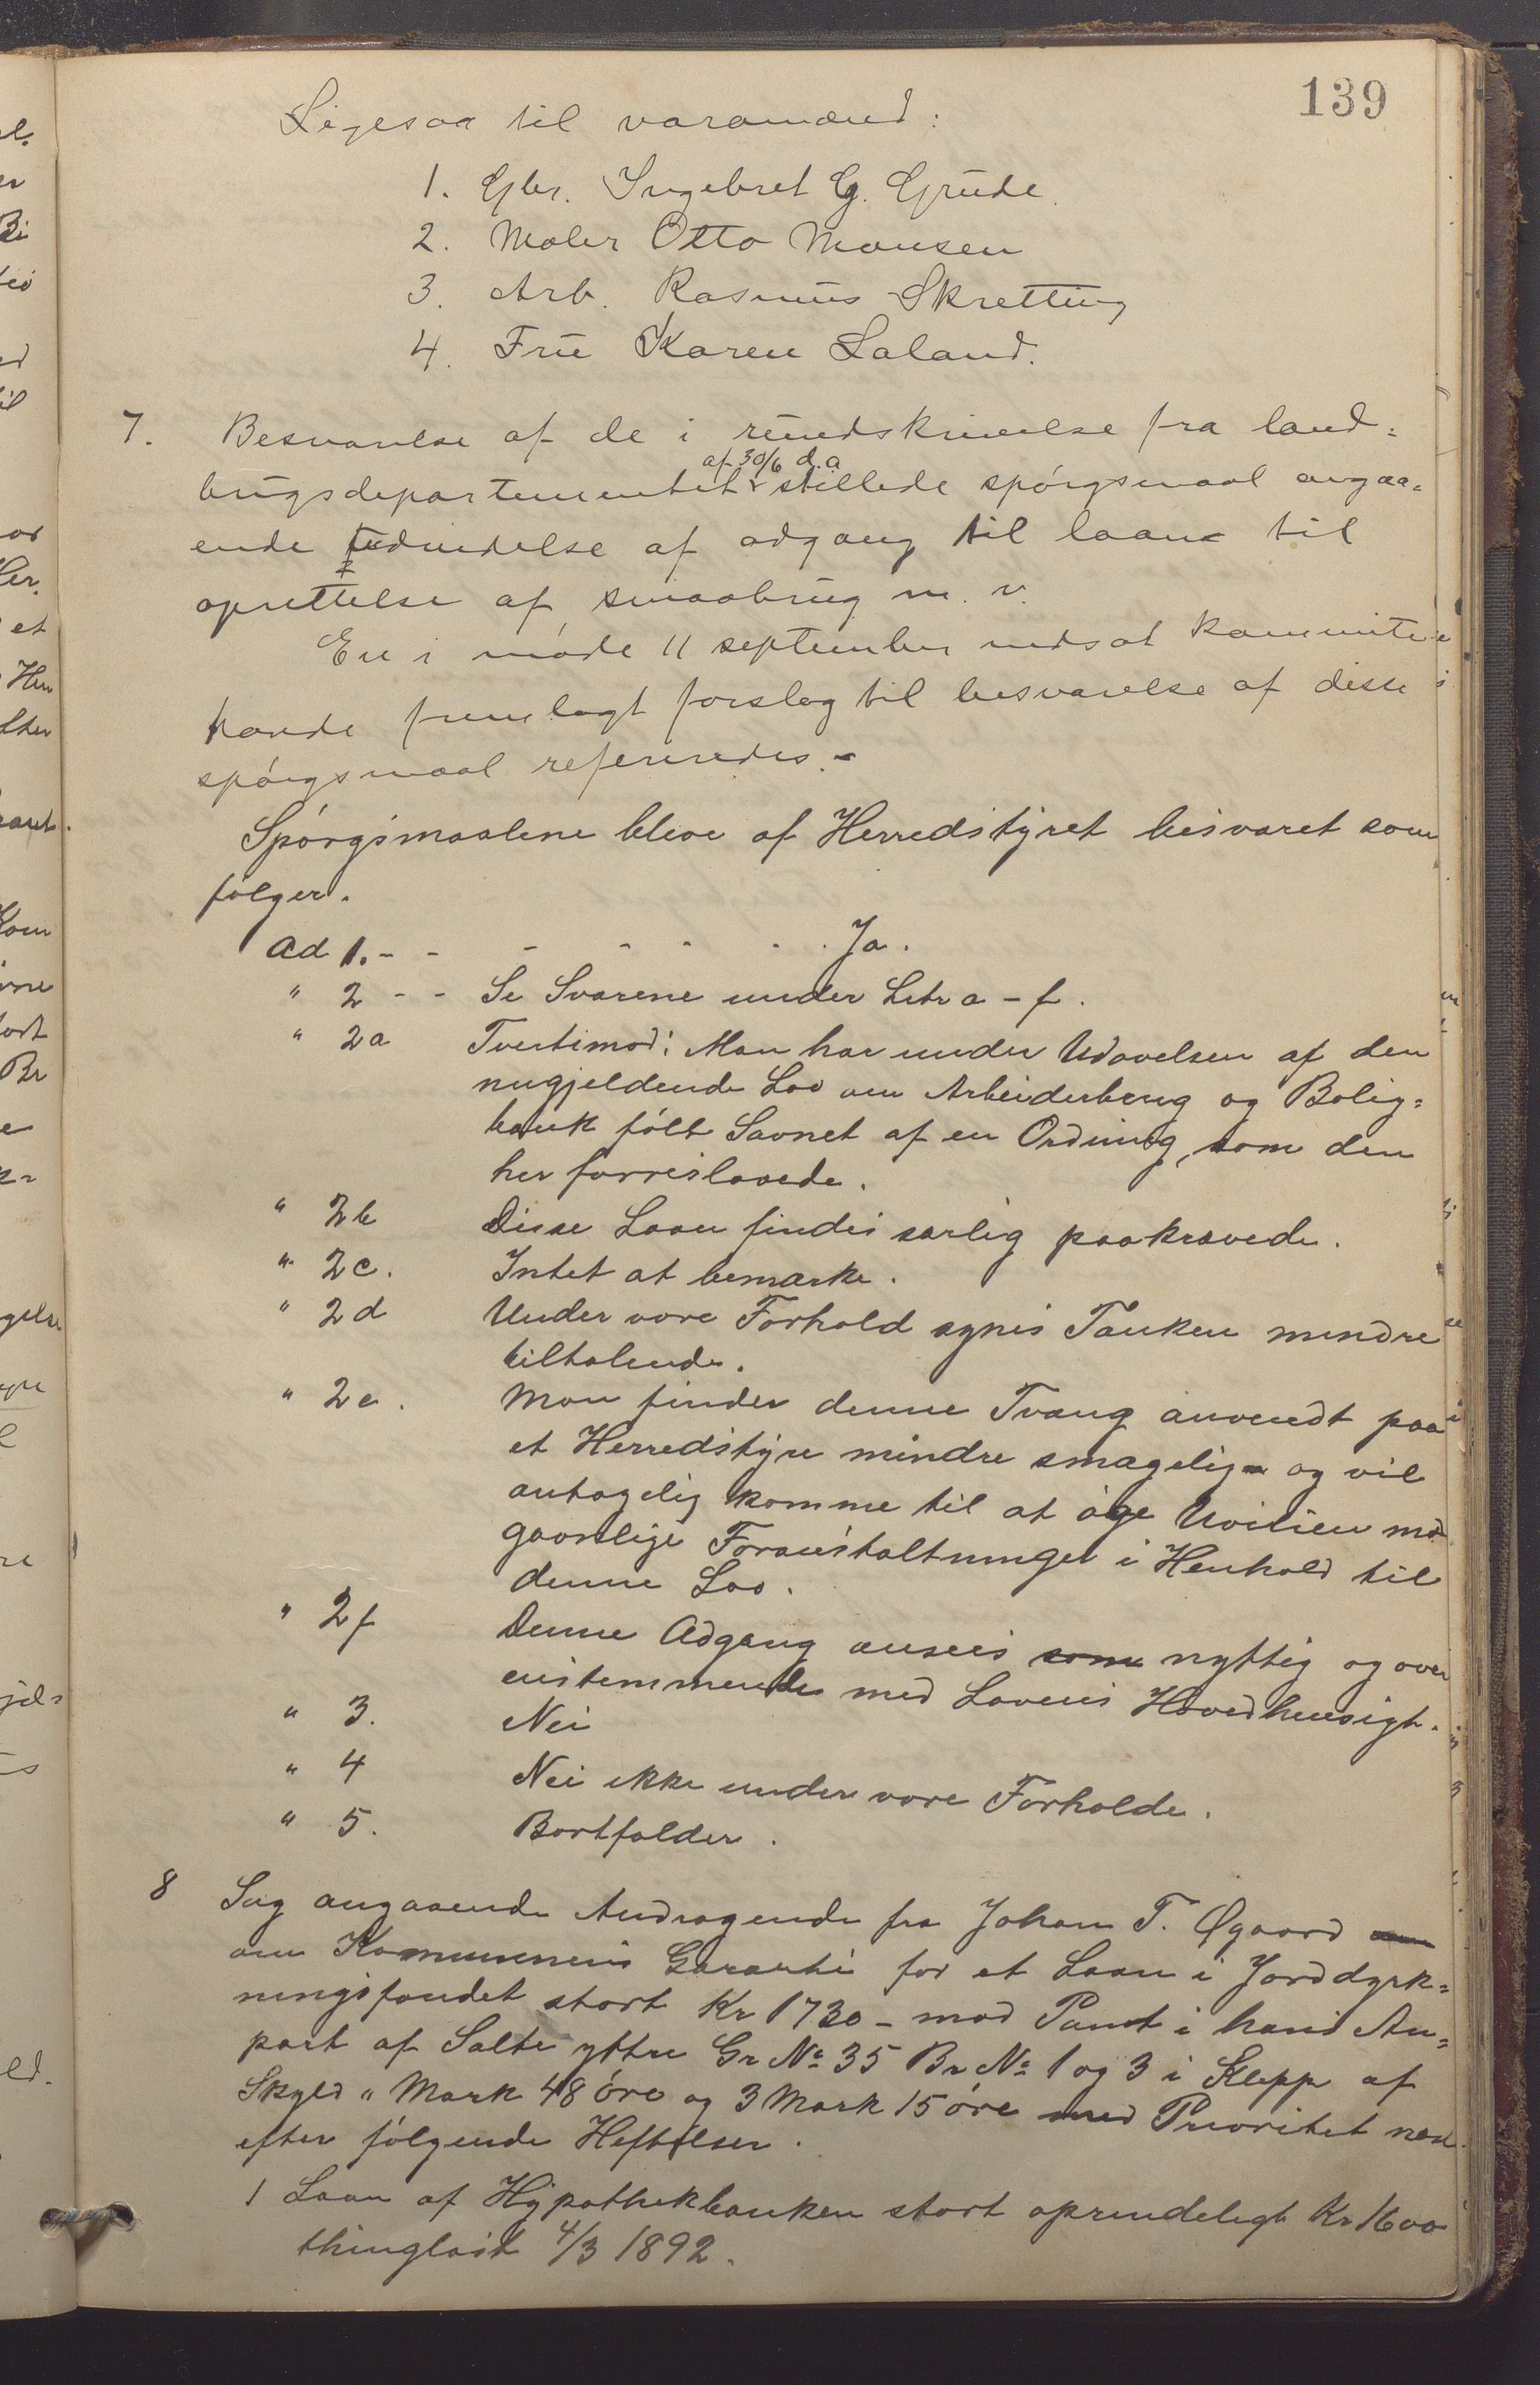 139
Ligesaa til varamænd:
1. Gbr. Ingebret G. Grude.
2. Maler Otto Monsen
3. Arb. Rasmus Skretting
4. Frue Karen Laland.
7. Besvarelse af de i rundskrivelse fra land=
af 30/6 d.a
brugsdepartementet stillede spórgsmaal angaa=
ende udvidelse af adgang til laan til
oprettelse af smaabrug m. v.
En i móde 11 september nedsat kommite
havde fremlagt forslag til besvarelse af disse
spórgsmaal refereredes.-
Spórgsmaalene bleve af Herredstyret besvaret som
fólger.
Ad 1. - - - - - - . Ja.
" 2 - - Se Svarene under Litr a - f.
" 2a Tvertimod: Man har under Udøvelsen af den
nugjeldende Lov om Arbeiderbrug og Bolig=
bank fólt Savnet af en Ordning, som den
her forreslaaede.
" 2b Disse Laan findes særlig paakrævede.
" 2c. Intet at bemærke.
" 2d Under vore Forhold synes Tanken mindre
tiltalende.
" 2e. Man finder denne Tvang anvendt paa
et Herredstyre mindre smagelig og vil
antagelig komme til at óge Uvilien mod
gavnlige Foranstaltninger i Henhold til
denne Lov.
" 2f Denne Adgang ansees som nyttig og over
ensstemmende med Lovens Hovedhensigt.
" 3. Nei
" 4 Nei ikke under vore Forholde.
" 5. Bortfalder.
8 Sag angaaende Andragende fra Johan T. Øgaard
om Kommunens Garanti for et Laan i Jorddyrk=
ningsfondet stort Kr 1730 - mod Pant i hans An=
part af Salte yttre Gr No 35 Br No 1 og 3 i Klepp af
Skyld " Mark 48 óre og 3 Mark 15 óre med Prioritet næst
efter fólgende Heftelser.
1 Laan af Hypothekbanken stort oprindeligt Kr 1600
thinglæst 4/3 1892.